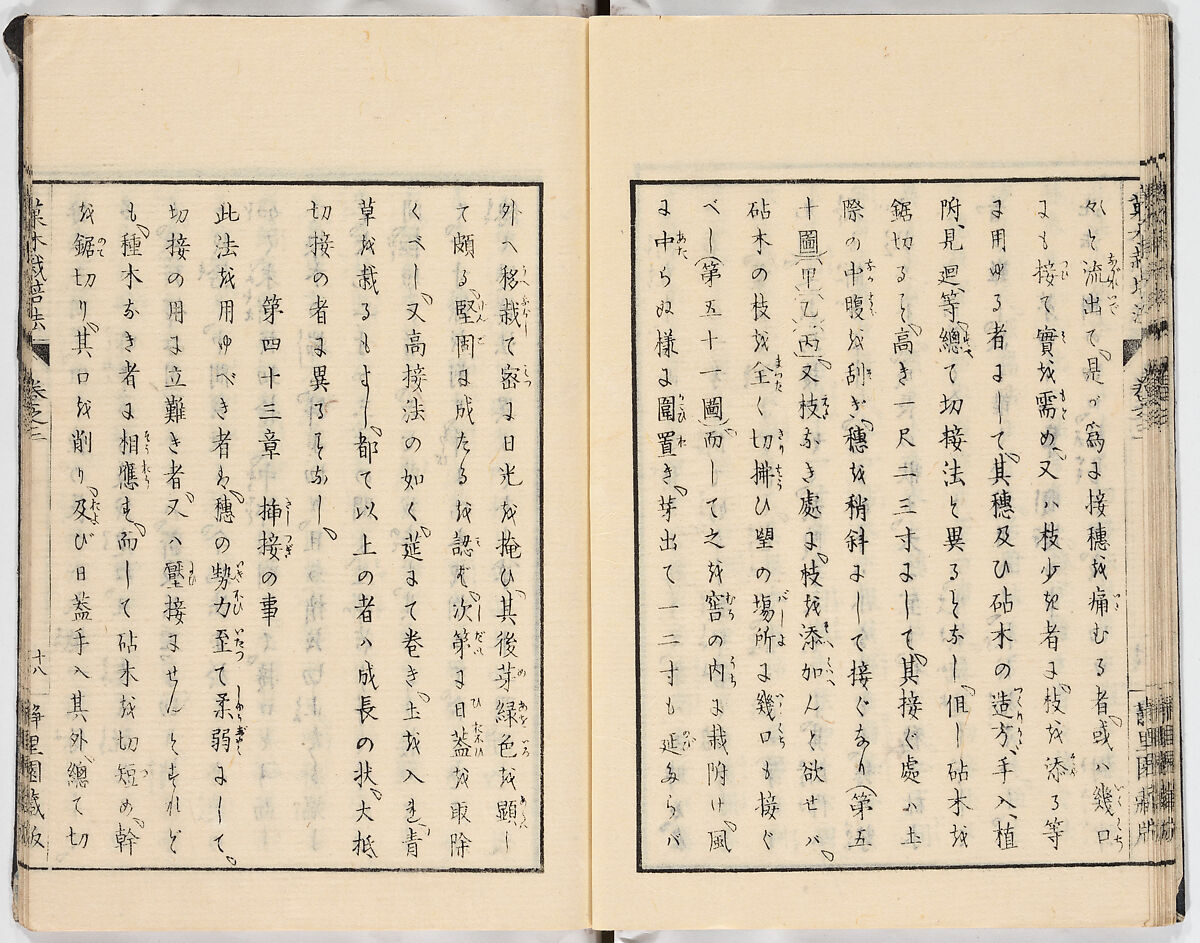 々と流出て、是が爲に接穗を痛むる者、或ハ幾口
にも接て實を需め、又ハ枝少き者に、枝を添る等
に用ゆる者にして、其穗及ひ砧木の造方、手入、植
附、見廻、等、總て切接法と異るとなし、但し砧木を
鋸切ると、高き一尺二三寸にして、其接ぐ處ハ土
際の中腹を刮ぎ、穗を稍斜にして接ぐなり(第五
十圖)(甲)(乙)(丙)又枝なき處に、枝を添加んと欲せハ、
砧木の枝を全く切拂ひ望の塲所に幾口も接ぐ
べし(第五十一圖)而して之を窖の内に栽附け、風
に中らぬ樣に圍置き、芽出て一二寸も延たらバ
外へ移栽て密に日光を掩ひ、其後芽緑色を顕し
て頗る堅固に成たるを認ば、次第に日蓋を取除
くべし、又高接法の如く、莚にて巻き、土を入れ、青
草を栽るもよし、都て以上の者ハ成長の状、大抵
切接の者に異るとなし、
第四十三章 挿接の事
此法を用ゆべき者は、穗の勢力至て柔弱にして、
切接の用に立難き者、又ハ壓接にせんとすれど
も、種木なき者に相應す、而して砧木を切短め、幹
を鋸切り、其口を削り、及び日蓋手入其外、總て切
菓木栽培法
卷之三
十八
靜里園藏版